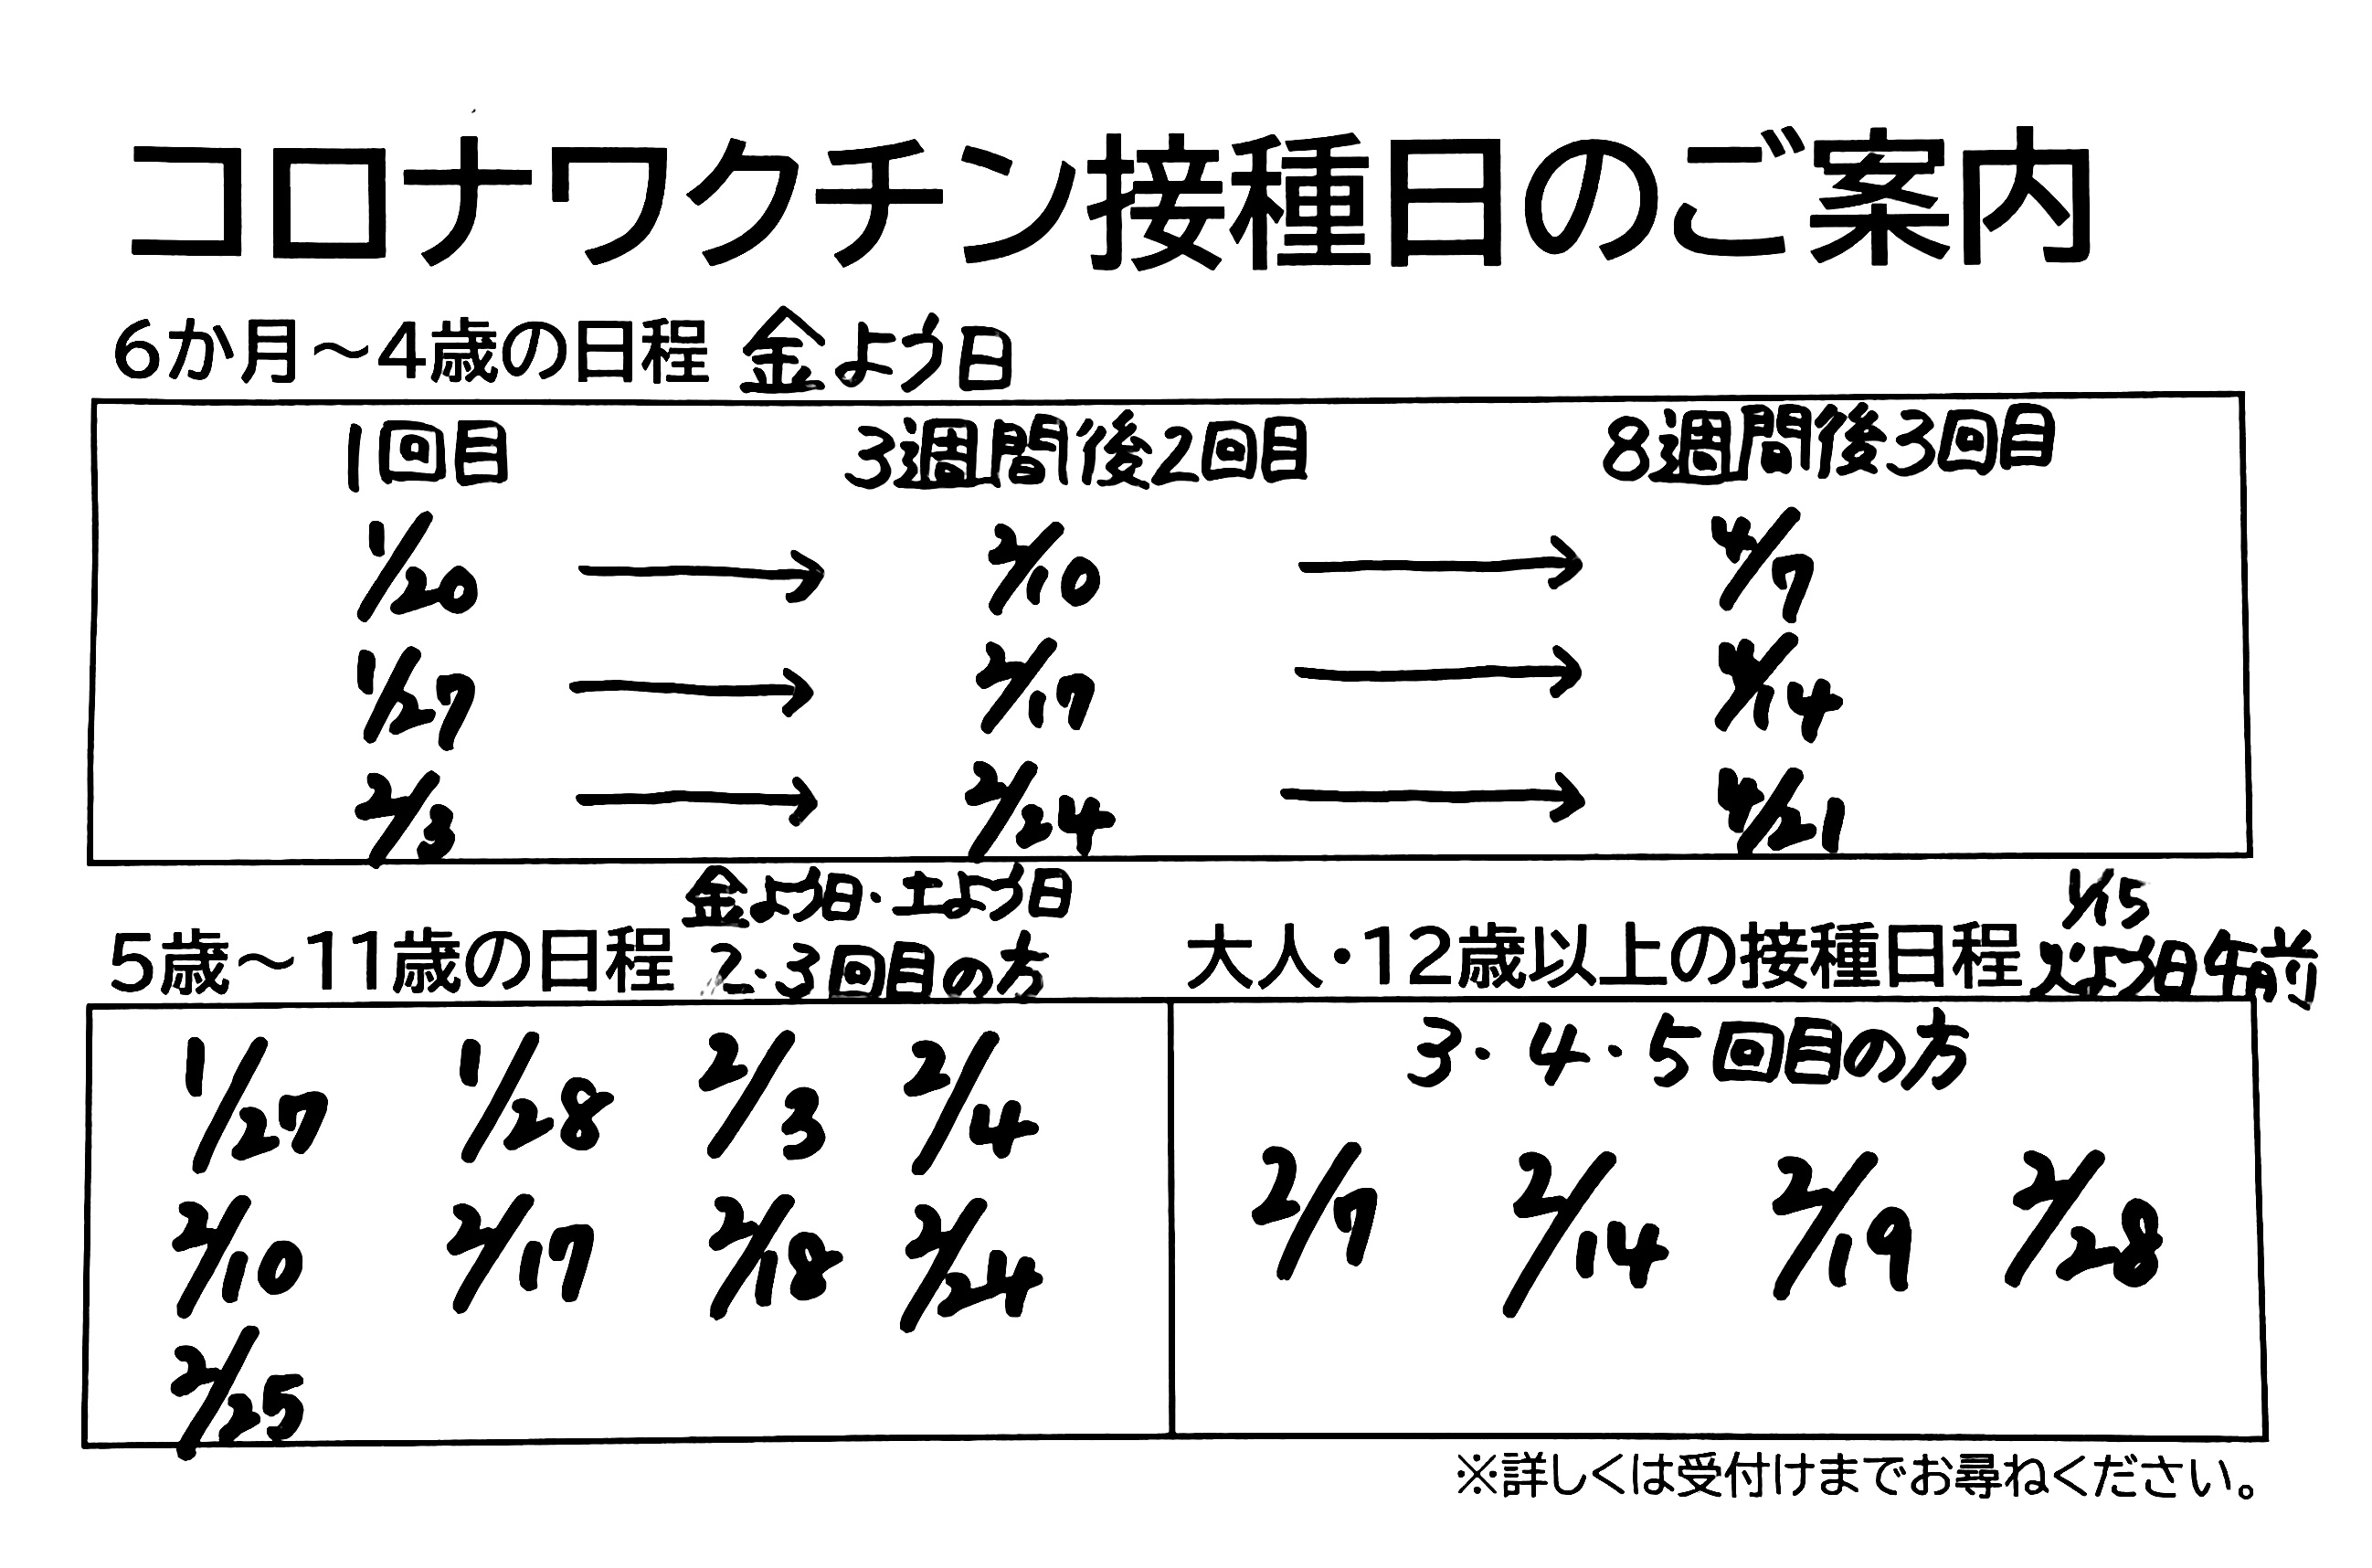 コロナワクチン接種日のご案内
6か月～4歳の日程 金よう日
1回目 3週間後2回目 8週間後3回目
1/20 → 2/10 → 4/7
1/27 → 2/17 → 4/14
2/3 → 2/24 → 4/21
金よう日・土よう日
5歳～11歳の日程 2・3回目の方
1/27 1/28 2/3 2/4
2/10 2/17 2/18 2/24
2/25
1/15
大人・12歳以上の接種日程 よう日午前
3・4・5回目の方
2/7 2/14 2/19 2/28
※詳しくは受付けまでお尋ねください。